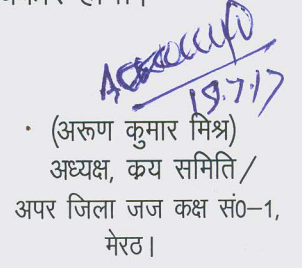 19.7.17
(अरूण कुमार मिश्र)
अध्यक्ष, क्रय समिति /
अपर जिला जज कक्ष सं0-1,
मेरठ।